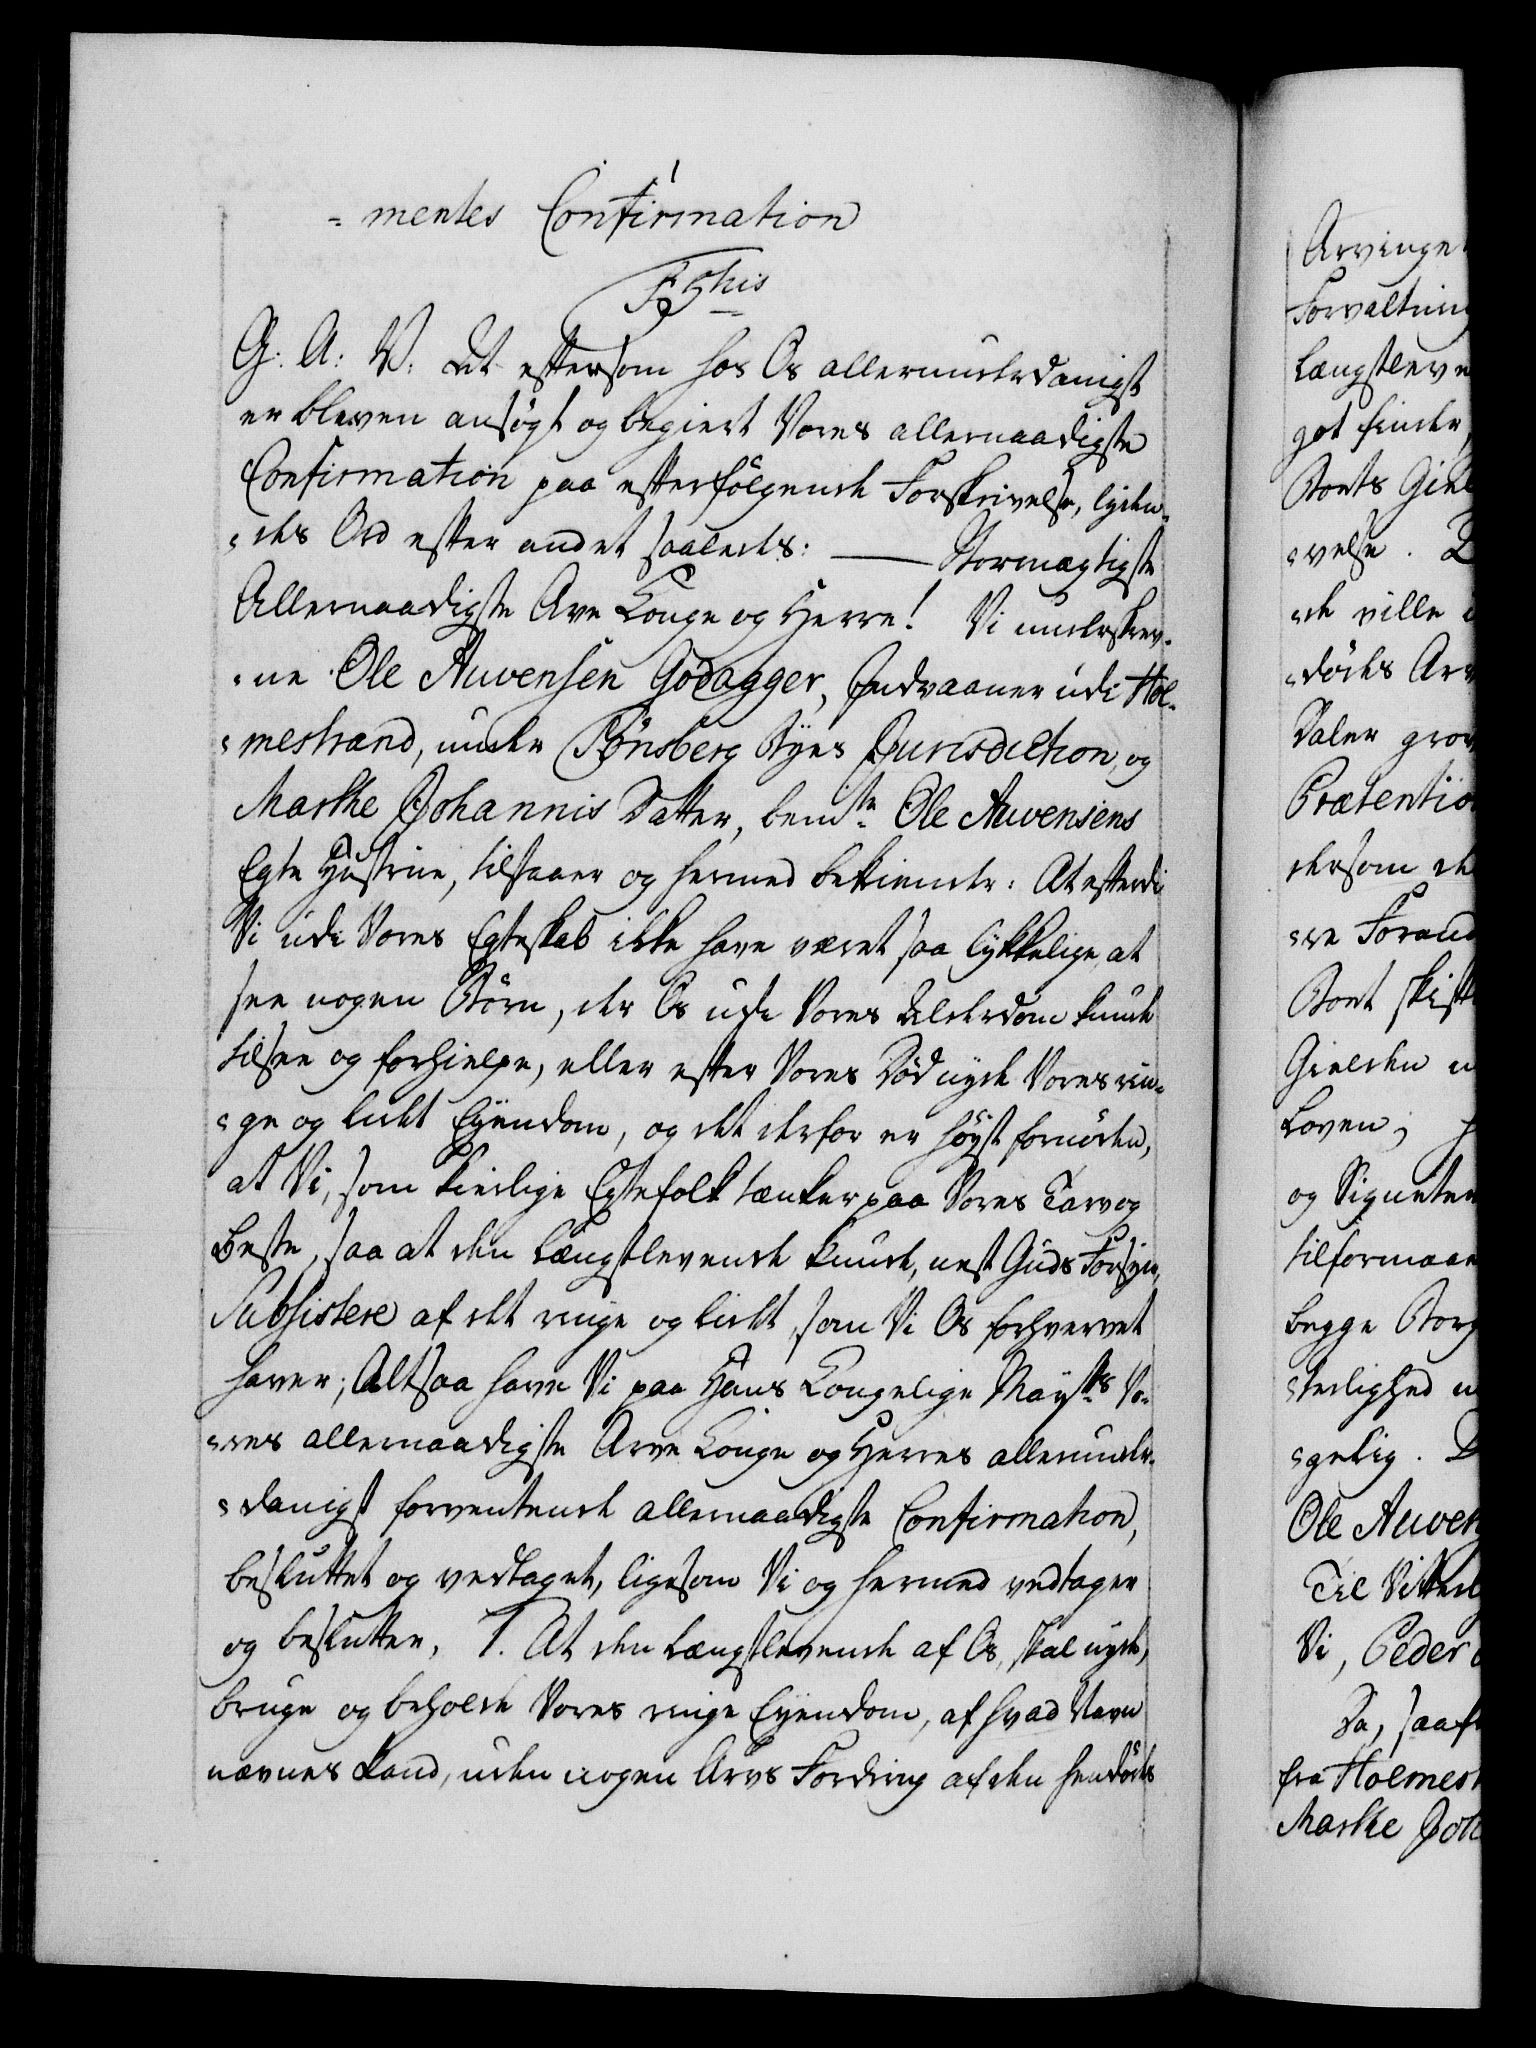 = mentes Confirmation
G: A: V: At eftersom hos Os allerunderdanigst
er bleven ansøgt og begiert Vores allernaadigste
Confirmation paa efterfølgende Forskrivelse, lyden¬
¬des Ord efter andet saaledes: — Stormægtigste
Allernaadigste Arve Konge og Herre! Vi underskrev¬
¬ne Ole Auvensen Godagger, Indvaaner udi Hol¬
¬mestrand, under Tønsberg Byes Jurisdiction, og
Marthe Johannis Datter, bemte Ole Auvensens
Egte Hustrue, tilstaaer og hermed bekiender: At efterdi
Vi udi Vores Egteskab ikke have været saa lykkelige, at
see nogen Børn, der Os udi Vores Alderdom kunde
tilsee og forhielpe, eller efter Vores Død nyde Vores rin¬
¬ge og lidet Eyendom, og det derfor er høyst fornøden,
at Vi, som kierlige Egtefolk tænker paa Vores Tarv og
Beste, saa at den Længstlevende kunde, nest Guds Forsyn,
Subsistere af det ringe og lidet, som Vi Os forhvervet
haver; Altsaa have Vi paa Hans Kongelige Mayts Vo¬
¬res allernaadigste Arve Konge og Herres allerunder¬
¬danigst forventende allernaadigste Confirmation,
besluttet og vedtaget, ligesom Vi og hermed vedtager
og beslutter, 1. At den Længstlevende af Os, skal nyde,
bruge og beholde Vores ringe Eyendom, af hvad Navn
nævnes kand, uden nogen Arvs Fordring af den hendødes
Arvinge
Forvaltning
Længstleve
got finder,
Boets Giel
¬velse.
¬de ville
¬dødes Arv
Daler grov
Prætention
dersom de
¬re Forand
Boet skift
Gielden
Loven;
og Signeter
tilformaae
begge Borg
¬terlighed
¬gelig.
Ole Auven
Til Vitterl
Vi, Peder
Da, saaf
fra Holmest
Marthe Joh